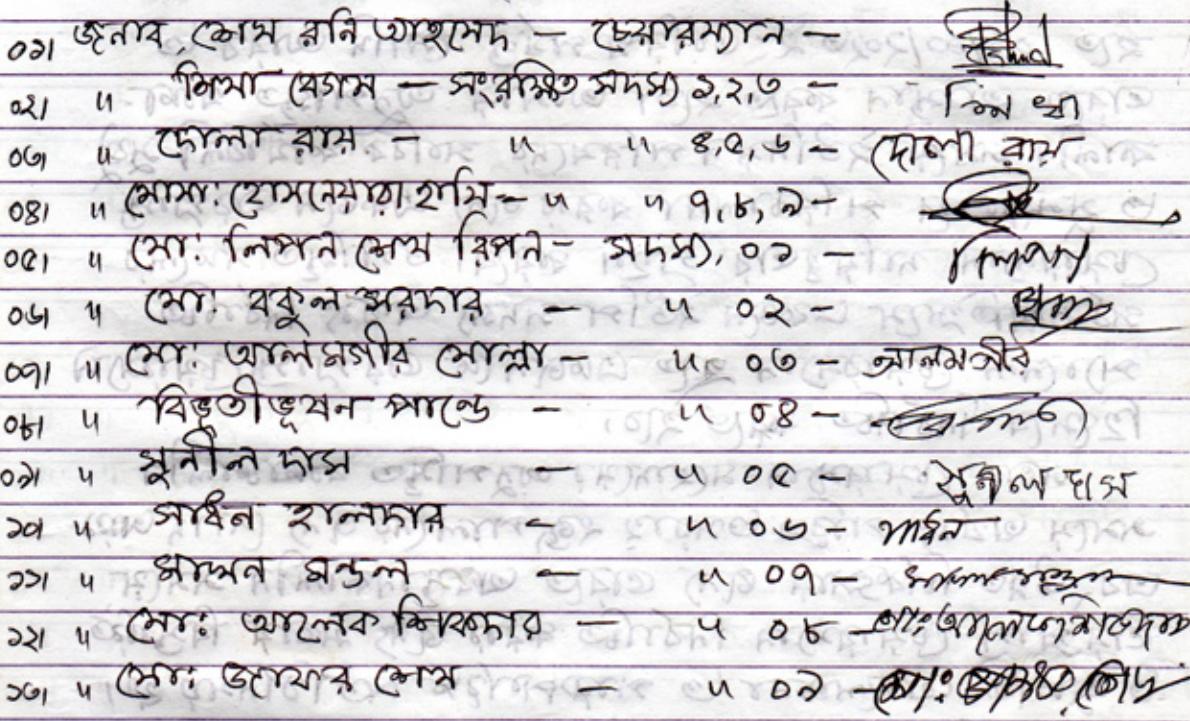 ০১। জনাব শেখ রনি আহমেদ – চেয়ারম্যান –
০২। " শিখা বেগম – সংরক্ষিত সদস্য ১,২,৩ – শিখা
০৩। " দোলা রায় – " " ৪,৫,৬ – দোলা রায়
০৪। " মোসা: হোসনেয়ারা হাসি – " " ৭,৮,৯ –
০৫। " মো: লিপন শেখ রিপন – সদস্য, ০১ – লিপন
০৬। " মো: বকুল সরদার – " ০২ –
০৭। " মো: আলমগীর মোল্লা – " ০৩ – আলমগীর
০৮। " বিভূতীভূষন পান্ডে – " ০৪ –
০৯। " সুনীল দাস – " ০৫ – সুনীল দাস
১০। " সাধন হালদার – " ০৬ – সাধন
১১। " মাখন মন্ডল – " ০৭ –
১২। " মো: আলেক শিকদার – " ০৮ – মো: আলেক শিকদার
১৩। " মো: জাফার শেখ – " ০৯ –